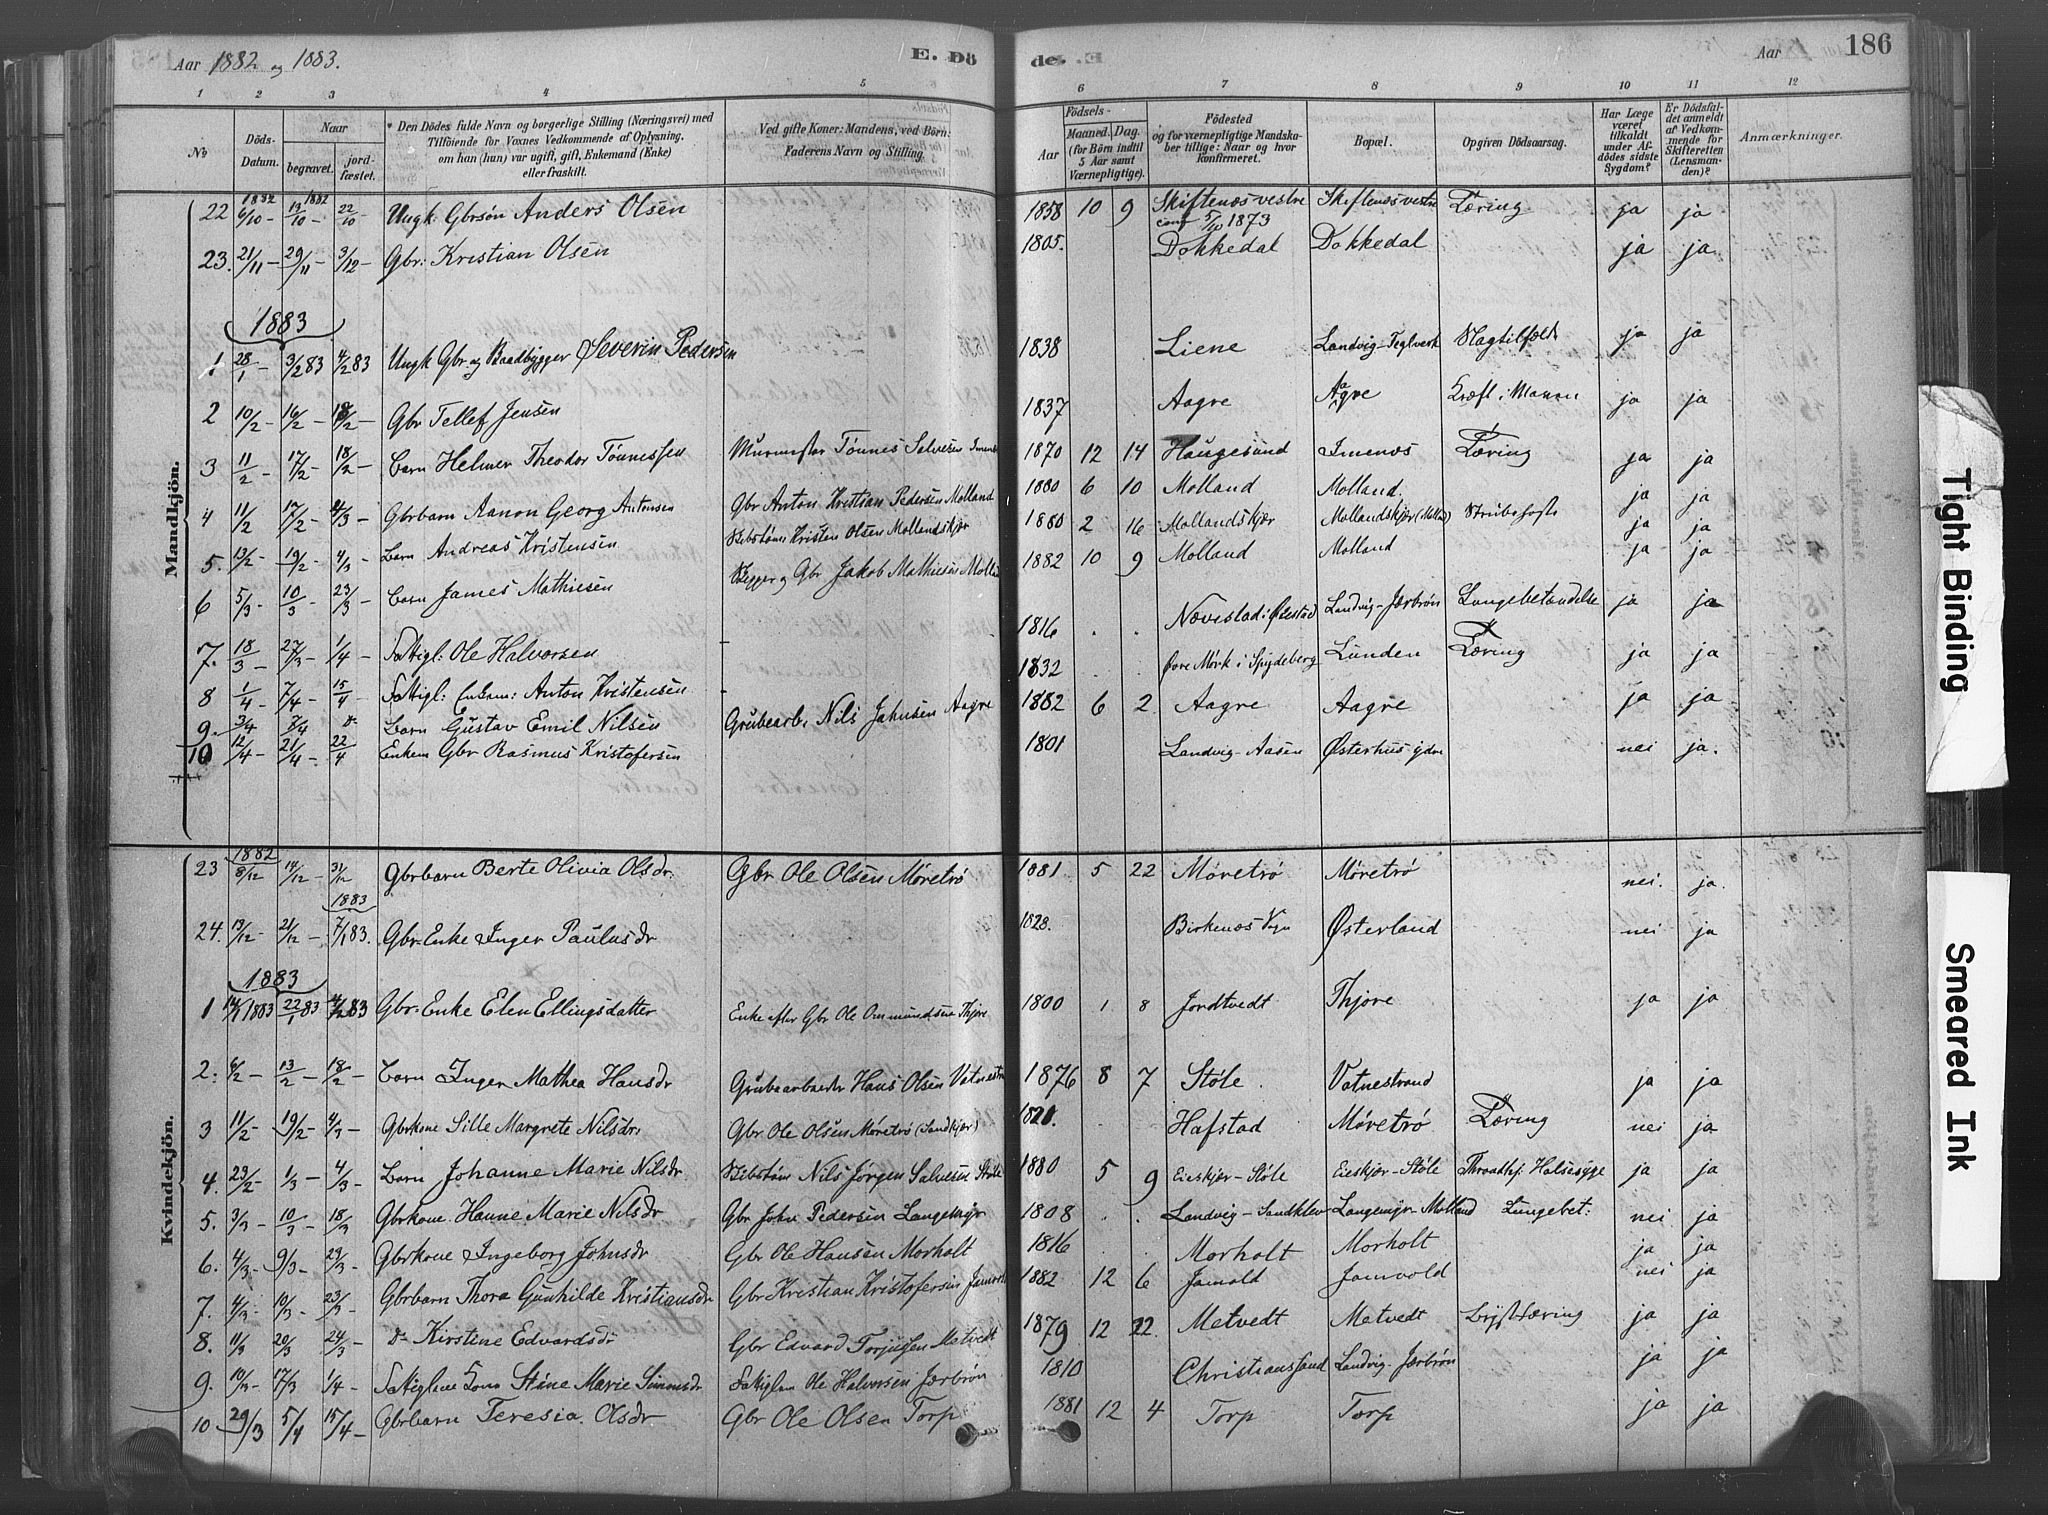 Aar 1882 og 1883.
E. Dö
de. E
Aar
186
1 2 3 4 5 6 7 8 9 10 11 12
No
Döds-Datum.
Naar
begravet.
jord-fæstet.
Den Dödes fulde Navn og borgerlige Stilling (Næringsvei) med
Tilföiende for Voxnes Vedkommende af Oplysning,
om han (hun) var ugift, gift, Enkemand (Enke)
eller fraskilt.
Ved gifte Koner: Mandens, ved Börn:
Faderens Navn og Stilling.
Födsels-
Aar
Maaned. Dag.
(for Börn indtil
5 Aar samt
Værnepligtige).
Födested
og for værnepligtige Mandska-
ber tillige: Naar og hvor
konfirmeret.
Bopæl.
Opgiven Dödsaarsag.
Har Læge
været
tilkaldt
under Af-
dödes sidste
Sygdom?
Er Dödsfal-
det anmeldt
af Vedkom-
mende for
Skifteretten
(Lensman-
den)?
Anmærkninger.
Mandkjön.
1882 1882
22 6/10 - 13/10 - 22/10 - Ungk. Gbrsøn Anders Olsen 1858 10 9 Skiftenæs vestre Skiftenæs vestre Tæring ja ja
conf 5/10 1873
23. 21/11 - 29/11 - 3/12 - Gbr: Kristian Olsen 1805. Dokkedal Dokkedal ja ja
1883
1 28/1 - 3/2 83 4/2 83 Ungk Gbr. og Baadbygger Severin Pedersen 1838 Liene Landvig-Teglverk Slagtilfælde ja ja
2 10/2 - 16/2 - 18/2 - Gbr Tellef Jensen 1837 Aagre Aagre Kræft i Maven ja ja
3 11/2 - 17/2 - 18/2 - Barn Helmer Theodor Tønnessen Murmester Tønnes Salvesen 1870 12 14 Haugesund Imenæs Tæring ja ja
4 11/2 - 17/2 - 4/3 - Gbrbarn Aanon Georg Antonsen Gbr Anton Kristian Pedersen Molland 1880 6 10 Molland Molland. ja ja
5. 13/2 - 19/2 - 4/3 - Barn Andreas Kristensen Skibstøm: Kristen Olsen Mollandskjær 1880 2 16 Mollandskjær Mollandskjær (Molland) Strubehoste ja ja
6 5/3 - 10/3 - 23/3 - Barn James Mathiesen Bygger og Gbr Jakob Mathiesen Molland 1882 10 9 Molland Molland ja ja
7. 18/3 - 27/3 - 1/4 - Fattigl: Ole Halvorsen - 1816 . . Nævestad i Øiestad Landvig-Jærbrøn Lungebetændelse ja ja
8 1/4 - 7/4 - 15/4 - Fattigl: Enkem: Anton Kristensen - 1832 Øvre Mørk i Spydeberg Lunden Tæring ja ja
9. 3/4 7/4 Do Barn Gustav Emil Nilsen Grubearb. Nils Jahnsen Aagre 1882 6 2 Aagre Aagre ja ja
10 12/4 - 21/4 - 22/4 Enkem Gbr Rasmus Kristofersen 1801 Landvig-Aasen Østerhus ydre nei ja.
Kvindekjön.
1882
23 8/12 14/12 - 31/12 Gbrbarn Berte Olivia Olsdr. Gbr Ole Olsen Møretrø 1881 5 22 Møretrø Møretrø nei. ja.
1883
24. 13/12 - 21/12 - 7/1 83. Gbr-Enke Inger Paulusdr 1828. Birkenæs Østerland nei ja
1883
1 14/1 1883 22/1 83 4/2 83 Gbr-Enke Elen Ellingsdatter Enke efter Gbr Ole Ommundsen Thjøre 1800 1 8 Jordtvedt Thjøre ja ja
2. 6/2 - 13/2 - 18/2 - Barn Inger Mathea Hansdr Grubearbeider Hans Olsen Vatnestr 1876 8 7 Støle Vatnestrand ja ja
3 11/2 - 19/2 - 4/3 - Gbrkone Sille Margrete Nilsdr. Gbr Ole Olsen Møretrø (Sandkjær) 1821. Hafstad Møretrø Tæring nei ja
4. 23/2 - 1/3 - 4/3 - Barn Johanne Marie Nilsdr Skibstøm Nils Jørgen Salvesen Støle 1880 5 9 Eieskjær-Støle Eieskjær-Støle Halsesyge ja ja
5. 3/3 - 10/3 - 18/3 Gbrkone Hanne Marie Nilsdr Gbr John Pedersen Langemyr 1808 . . Landvig-Sandklev Langemyr-Molland Lungebet: nei ja
6. 4/3 - 9/3 - 23/3 - Gbrkone Ingeborg Johnsdr Gbr Ole Hansen Morholt 1816 Morholt Morholt ja ja
7. 4/3 - 10/3 - 23/3 - Gbrbarn Thora Gunhilde Kristiansdr Gbr Kristian Kristofersen 1882 12 6 Jamvold Jamvold nei ja
8. 11/3 20/3 - 24/3 - Do Kirstine Edvardsdr Gbr Edvard Torjusen Metvedt 1879 12 22. Metvedt Metvedt Brysttæring ja ja
9. 10/3 - 17/3 1/4 - Fattiglems Kone Stine Marie Simonsdr Fattiglem Ole Halvorsen Jærbrøn 1810 Christianssand Landvig-Jærbrøn ja ja
10 29/3 5/4 15/4 - Gbrbarn Teresia Olsdr Gbr Ole Olsen Torp 1881 12 4 Torp Torp ja ja
Tight Binding
Smeared Ink